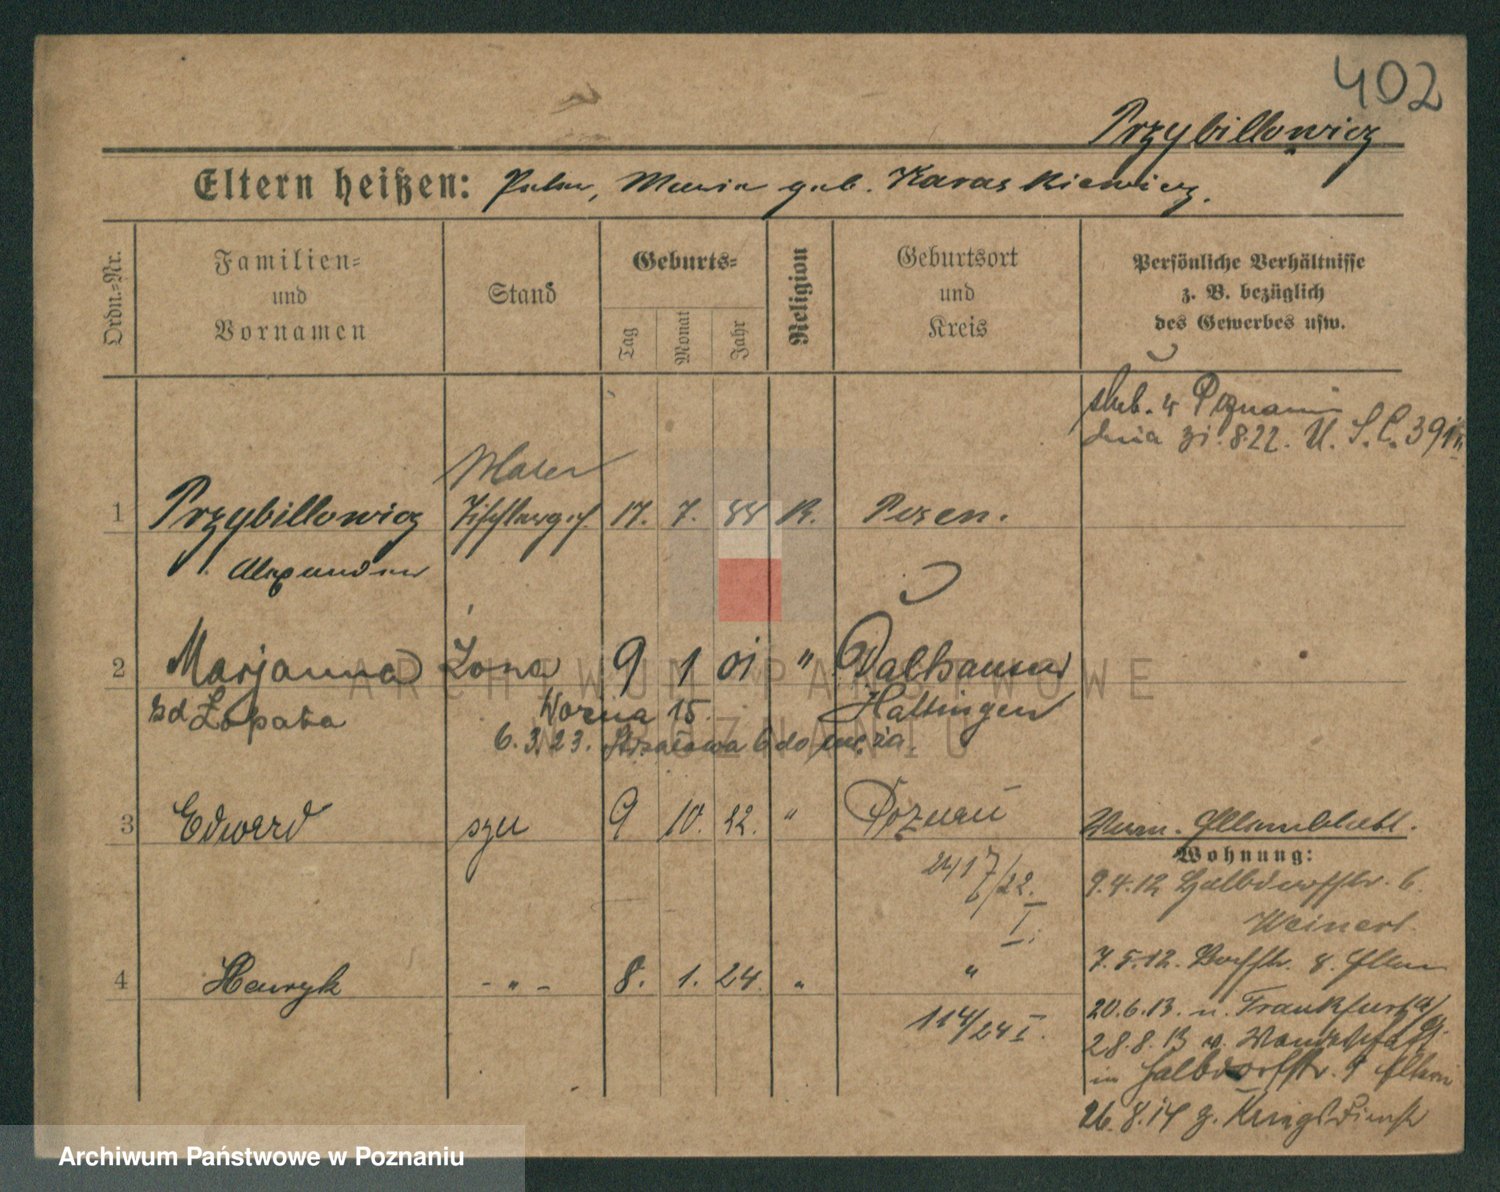 402
Przybillowicz
Eltern heißen: Peter, Maria geb. Karaskiewicz.
Ordn.-Nr.
Familien-
und
Vornamen
Stand
Geburts-
Tag
Monat
Jahr
Religion
Geburtsort
und
Kreis
Persönliche Verhältnisse
z. B. bezüglich
des Gewerbes usw.
ślub. w Poznaniu
dnia 31.8.22. U. S. C. 391
Maler
1 Przybillowicz Tischlerges 17. 7. 88 K. Posen.
Alexander
2 Marjanna Żona 9 1 01 " Dalhausen
zd Łopata Worna 15. Hattingen
6.3.23. Strzałowa 6 do męża.
3 Edward syn 9 10. 22. " Poznań
Verm. Elternblatt.
Wohnung:
2417/22.
I.
9.4.12 Halbdorfstr. 6.
Weinert.
7.5.12. 8. Eltern
4 Henryk - " - 8. 1. 24. " "
114/24 I.
20.6.13. n. Frankfurt a/O.
28.8.13 v. Wanderschaft
in Halbdorfstr. 9 Eltern
26.8.14 z. Kriegsdienst
ARCHIWUM PAŃSTWOWE
W POZNANIU
Archiwum Państwowe w Poznaniu